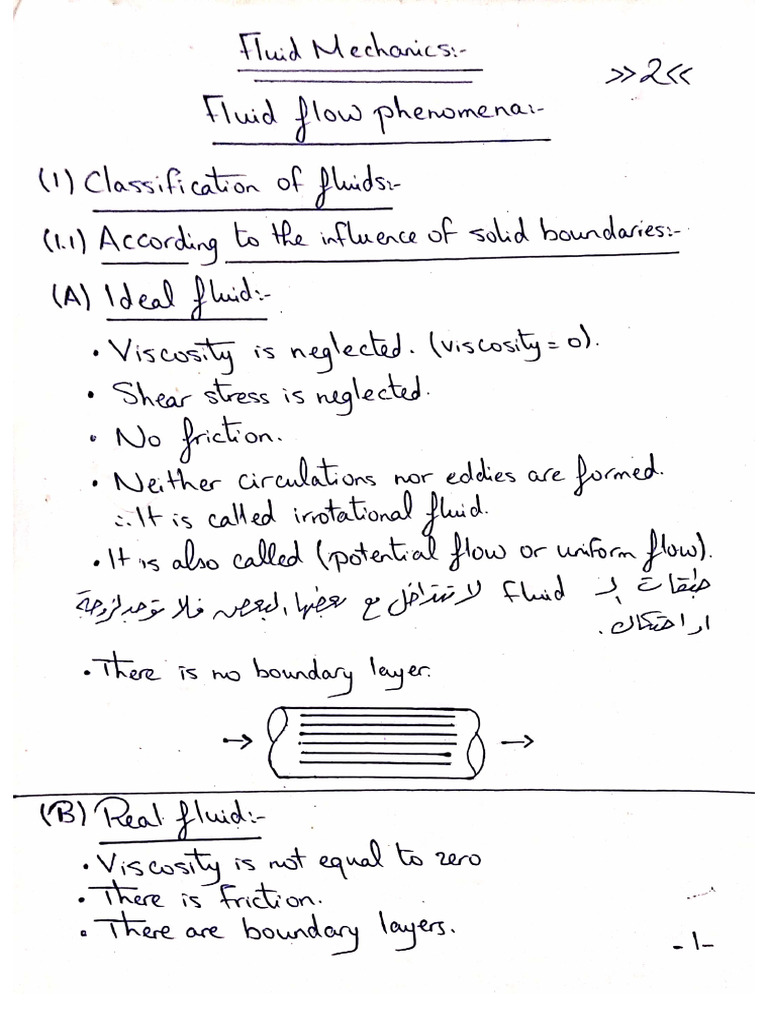 Fluid Mechanics:-
>>2<<
Fluid flow phenomena:-
(1) Classification of fluids:-
(1.1) According to the influence of solid boundaries:-
(A) Ideal fluid:-
• Viscosity is neglected. (viscosity = 0).
• Shear stress is neglected.
• No friction.
• Neither circulations nor eddies are formed.
∴ It is called irrotational fluid.
• It is also called (potential flow or uniform flow).
طبقات الـ fluid لا تتداخل مع بعضها البعض فلا توجد لزوجة
او احتكاك.
• There is no boundary layer.
(B) Real fluid:-
• Viscosity is not equal to zero
• There is friction.
• There are boundary layers.
-1-